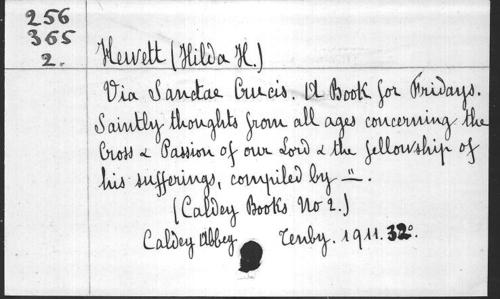 256
365
2.
Hewett (Hilda H.)
Via Sanctae Crucis. A Book for Fridays.
Saintly thoughts from all ages concerning the
Cross & Passion of our Lord & the fellowship of
his sufferings, compiled by —"—.
(Caldey Books No 2.)
Caldey Abbey Tenby. 1911. 32º.